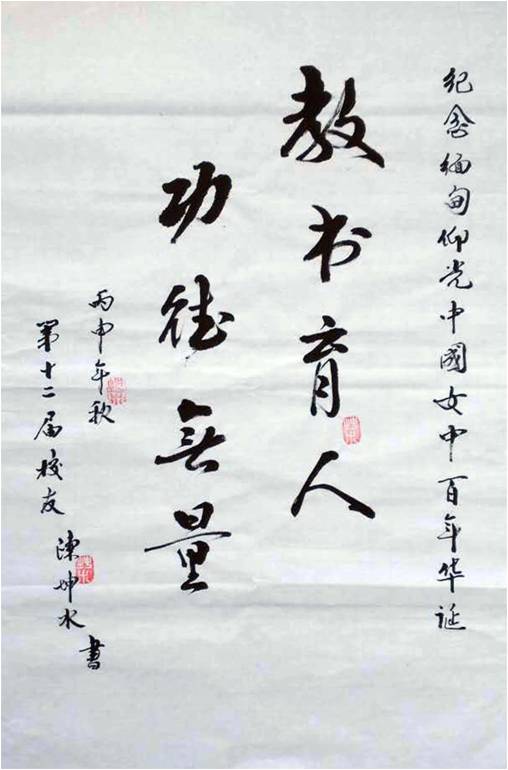 纪念缅甸仰光中國女中百年华诞
教书育人
功德無量
丙申年秋
第十二届校友 陳坤水 書